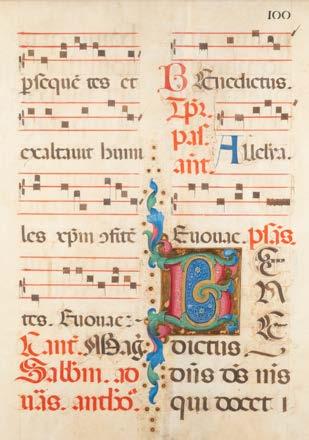 100
psequē tes et
exaltauit humi
les xp̄m ꝯfitē
tes. Euouae:-
Cant. Maḡ.
Sabbīn. ad
uās. anthō.
Benedictus.
Tp̄r.
pas.
ant. Alleīa.
Euouae. psās.
BENE
dictus
dn̄s ds̄ m̄s
qui docet i